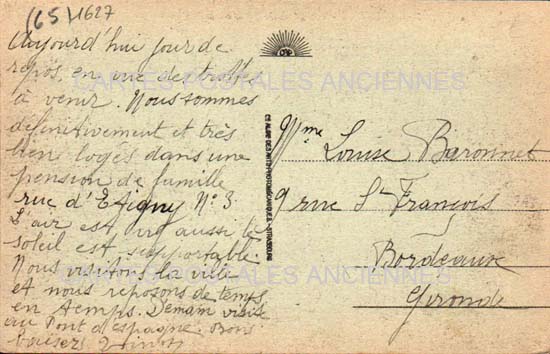 (65) 1627
Aujourd'hui jour de
repos, en vue des trottes
à venir. Nous sommes
définitivement et très
bien logés dans une
pension de famille
rue d'Etigny N° 3.
L'air est vif aussi le
soleil est supportable.
Nous visitons la ville
et nous reposons de temps
en temps. Demain visite
au Pont d'espagne. Bons
baisers
CARTES POSTALES ANCIENNES
CARTES POSTALES ANCIENNES
Mme Louise Baronnet
9 rue St François
Bordeaux
Gironde